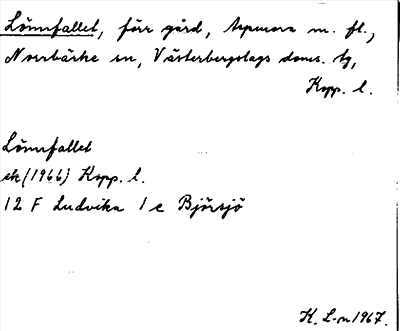 Lönnfallet, förr gård, Aspmora m. fl.,
Norrbärke sn, Västerbergslags doms. tg,
Kopp. l.
Lönnfallet
ek (1966) Kopp. l.
12 F Ludvika 1 c Björsjö
K. L-m 1967.